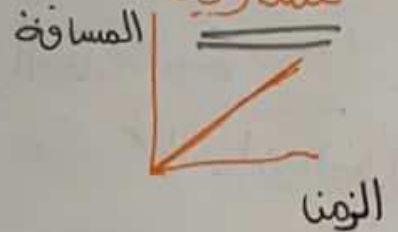 المسافة
الزمن